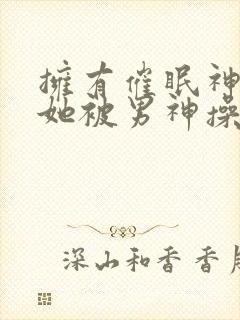 擁有催眠神
她被男神操
深山和香香